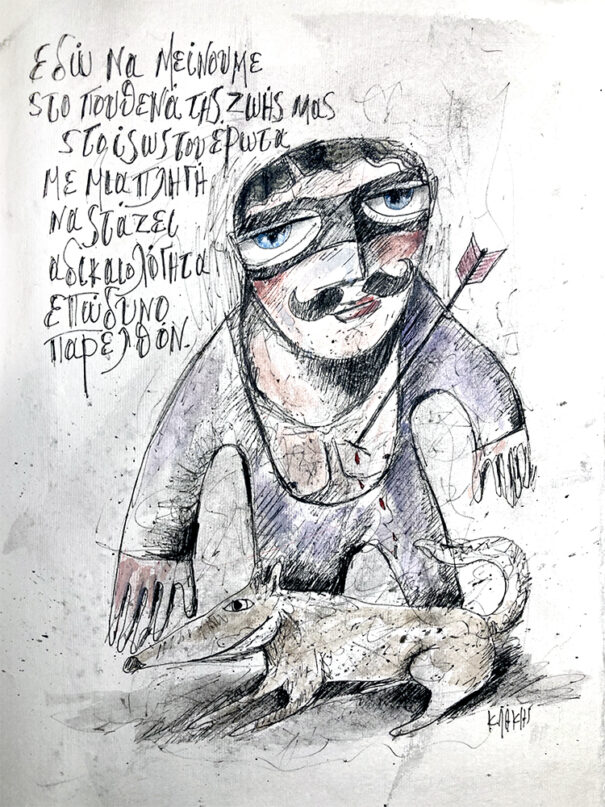 Εδώ να μείνουμε
στο πουθενά της ζωής μας
στο ίσως του έρωτα
με μια πληγή
να στάζει
αδικαιολόγητα
επώδυνο
παρελθόν.